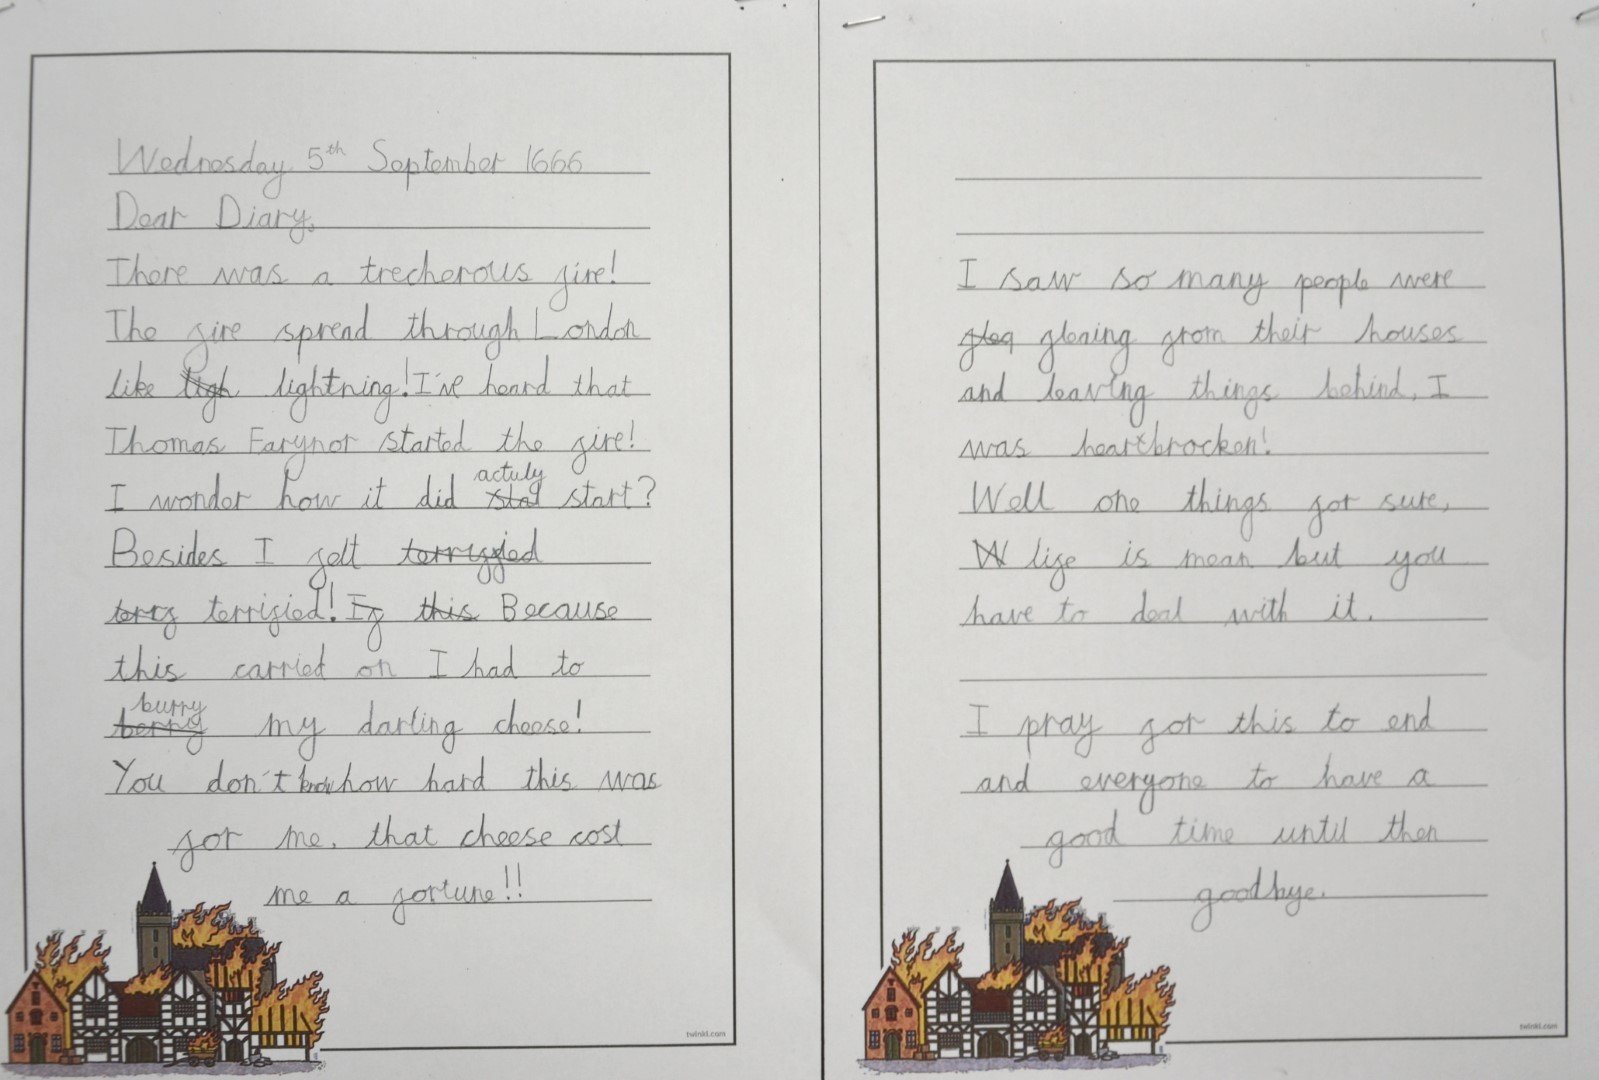 Wednesday 5th September 1666
Dear Diary,
There was a trecherous fire!
The fire spread through London
like ligh lightning! I've heard that
Thomas Farynor started the fire!
actuly
I wonder how it did stat start?
Besides I felt terryfied
terry terrified! If this Because
this carried on I had to
burry
berry my darling cheese!
You don't know how hard this was
for me, that cheese cost
me a fortune!!
twinkl.com
I saw so many people were
flea fleaing from their houses
and leaving things behind, I
was heartbrocken!
Well one things for sure,
W life is mean but you
have to deal with it.
I pray for this to end
and everyone to have a
good time until then
goodbye.
twinkl.com